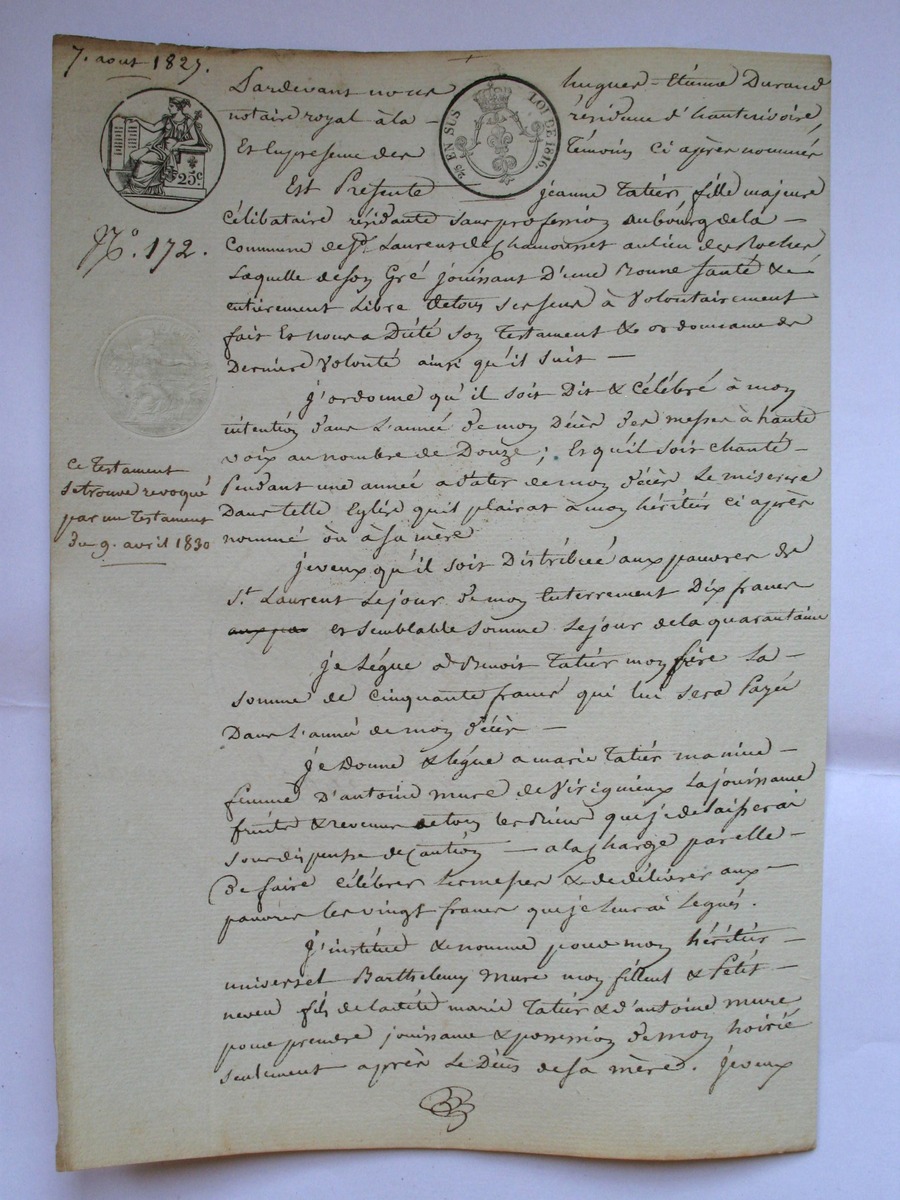 7. aout 1827.
Pardevant nous hugues-Etienne Durand
notaire royal à la - résidence d'hauterivoire,
Et En presence des Témoins ci après nommés
25c
¾0 EN SUS LOI DE 1816.
Est Presente jeanne Tatier, fille majeure
Célibataire résidante sans profession au bourg de la -
N°. 172.
Commune de St. Laurent de Chamousset au lieu des Rocher
Laquelle de son Gré jouissant D'une Bonne santé & é
entièrement Libre de tous ses sens à Volontairement
fait Et nous a Dicté son testament & ordonnance de
Derniere Volonté ainsi qu'il suit -
j'ordonne qu'il soit Dit & Célébré à mon
intention dans L'année de mon Décès des messes à haute
voix au nombre de Douze; Et qu'il soit chanté -
Pendant une année a dater de mon décès Le miserere
Dans telle Eglise qu'il plairat à mon héritier ci après
nommé ou à sa mère
Ce Testament
se trouve revoqué
par un Testament
du 9. avril 1830
je veux qu'il soit Distribuée aux pauvres de
St. Laurent Le jour de mon Enterrement Dix francs
aux pau et semblable somme Le jour de la quarantaine
je Légue a Benoit Tatier mon frère La -
somme de Cinquante francs qui lui sera Payée
Dans L'année de mon décès -
Je Donne & légue a marie Tatier ma niece -
femme D'antoine mure de Virigneux La jouissance
fruits & revenus de tous les Biens que je delaisserai
sous dispense de Caution - a la charge par elle -
De faire Célébrer Les messes & de délivrer aux -
pauvres les vingt francs que je leur ai Legués.
J'institue & nomme pour mon héritier -
universel Barthelemy Mure mon filleul & Petit -
neveu fils de ladite marie Tatier & d'antoine mure
pour prendre jouissance & possession de mon hoirie
seulement après Le Décès de sa mère. je veux